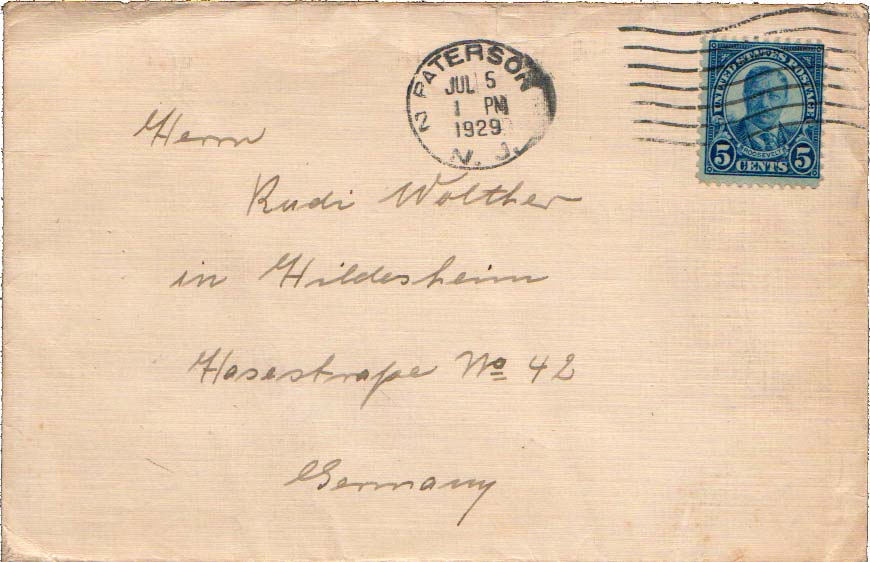 2 PATERSON N. J.
JUL 5
1 PM
1929
UNITED STATES POSTAGE
ROOSEVELT
5 CENTS 5
Herrn
Rudi Wolther
in Hildesheim
Hasestraße No 42
Germany